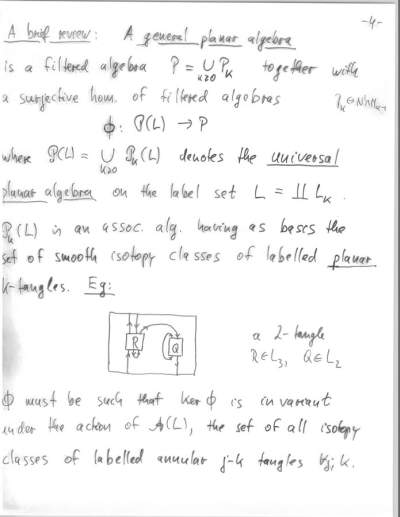 -4-
A brief review: A general planar algebra
is a filtered algebra P = ∪_{k≥0} P_k together with
a surjective hom. of filtered algebras
ϕ: P(L) → P
where P(L) = ∪_{k≥0} P_k(L) denotes the universal
planar algebra on the label set L = ∐ L_k.
P_k(L) is an assoc. alg. having as bases the
set of smooth isotopy classes of labelled planar
k-tangles. Eg:
R Q
a 2-tangle
R∈L_3, Q∈L_2
ϕ must be such that ker ϕ is invariant
under the action of A(L), the set of all isotopy
classes of labelled annular j-k tangles ∀j,k.